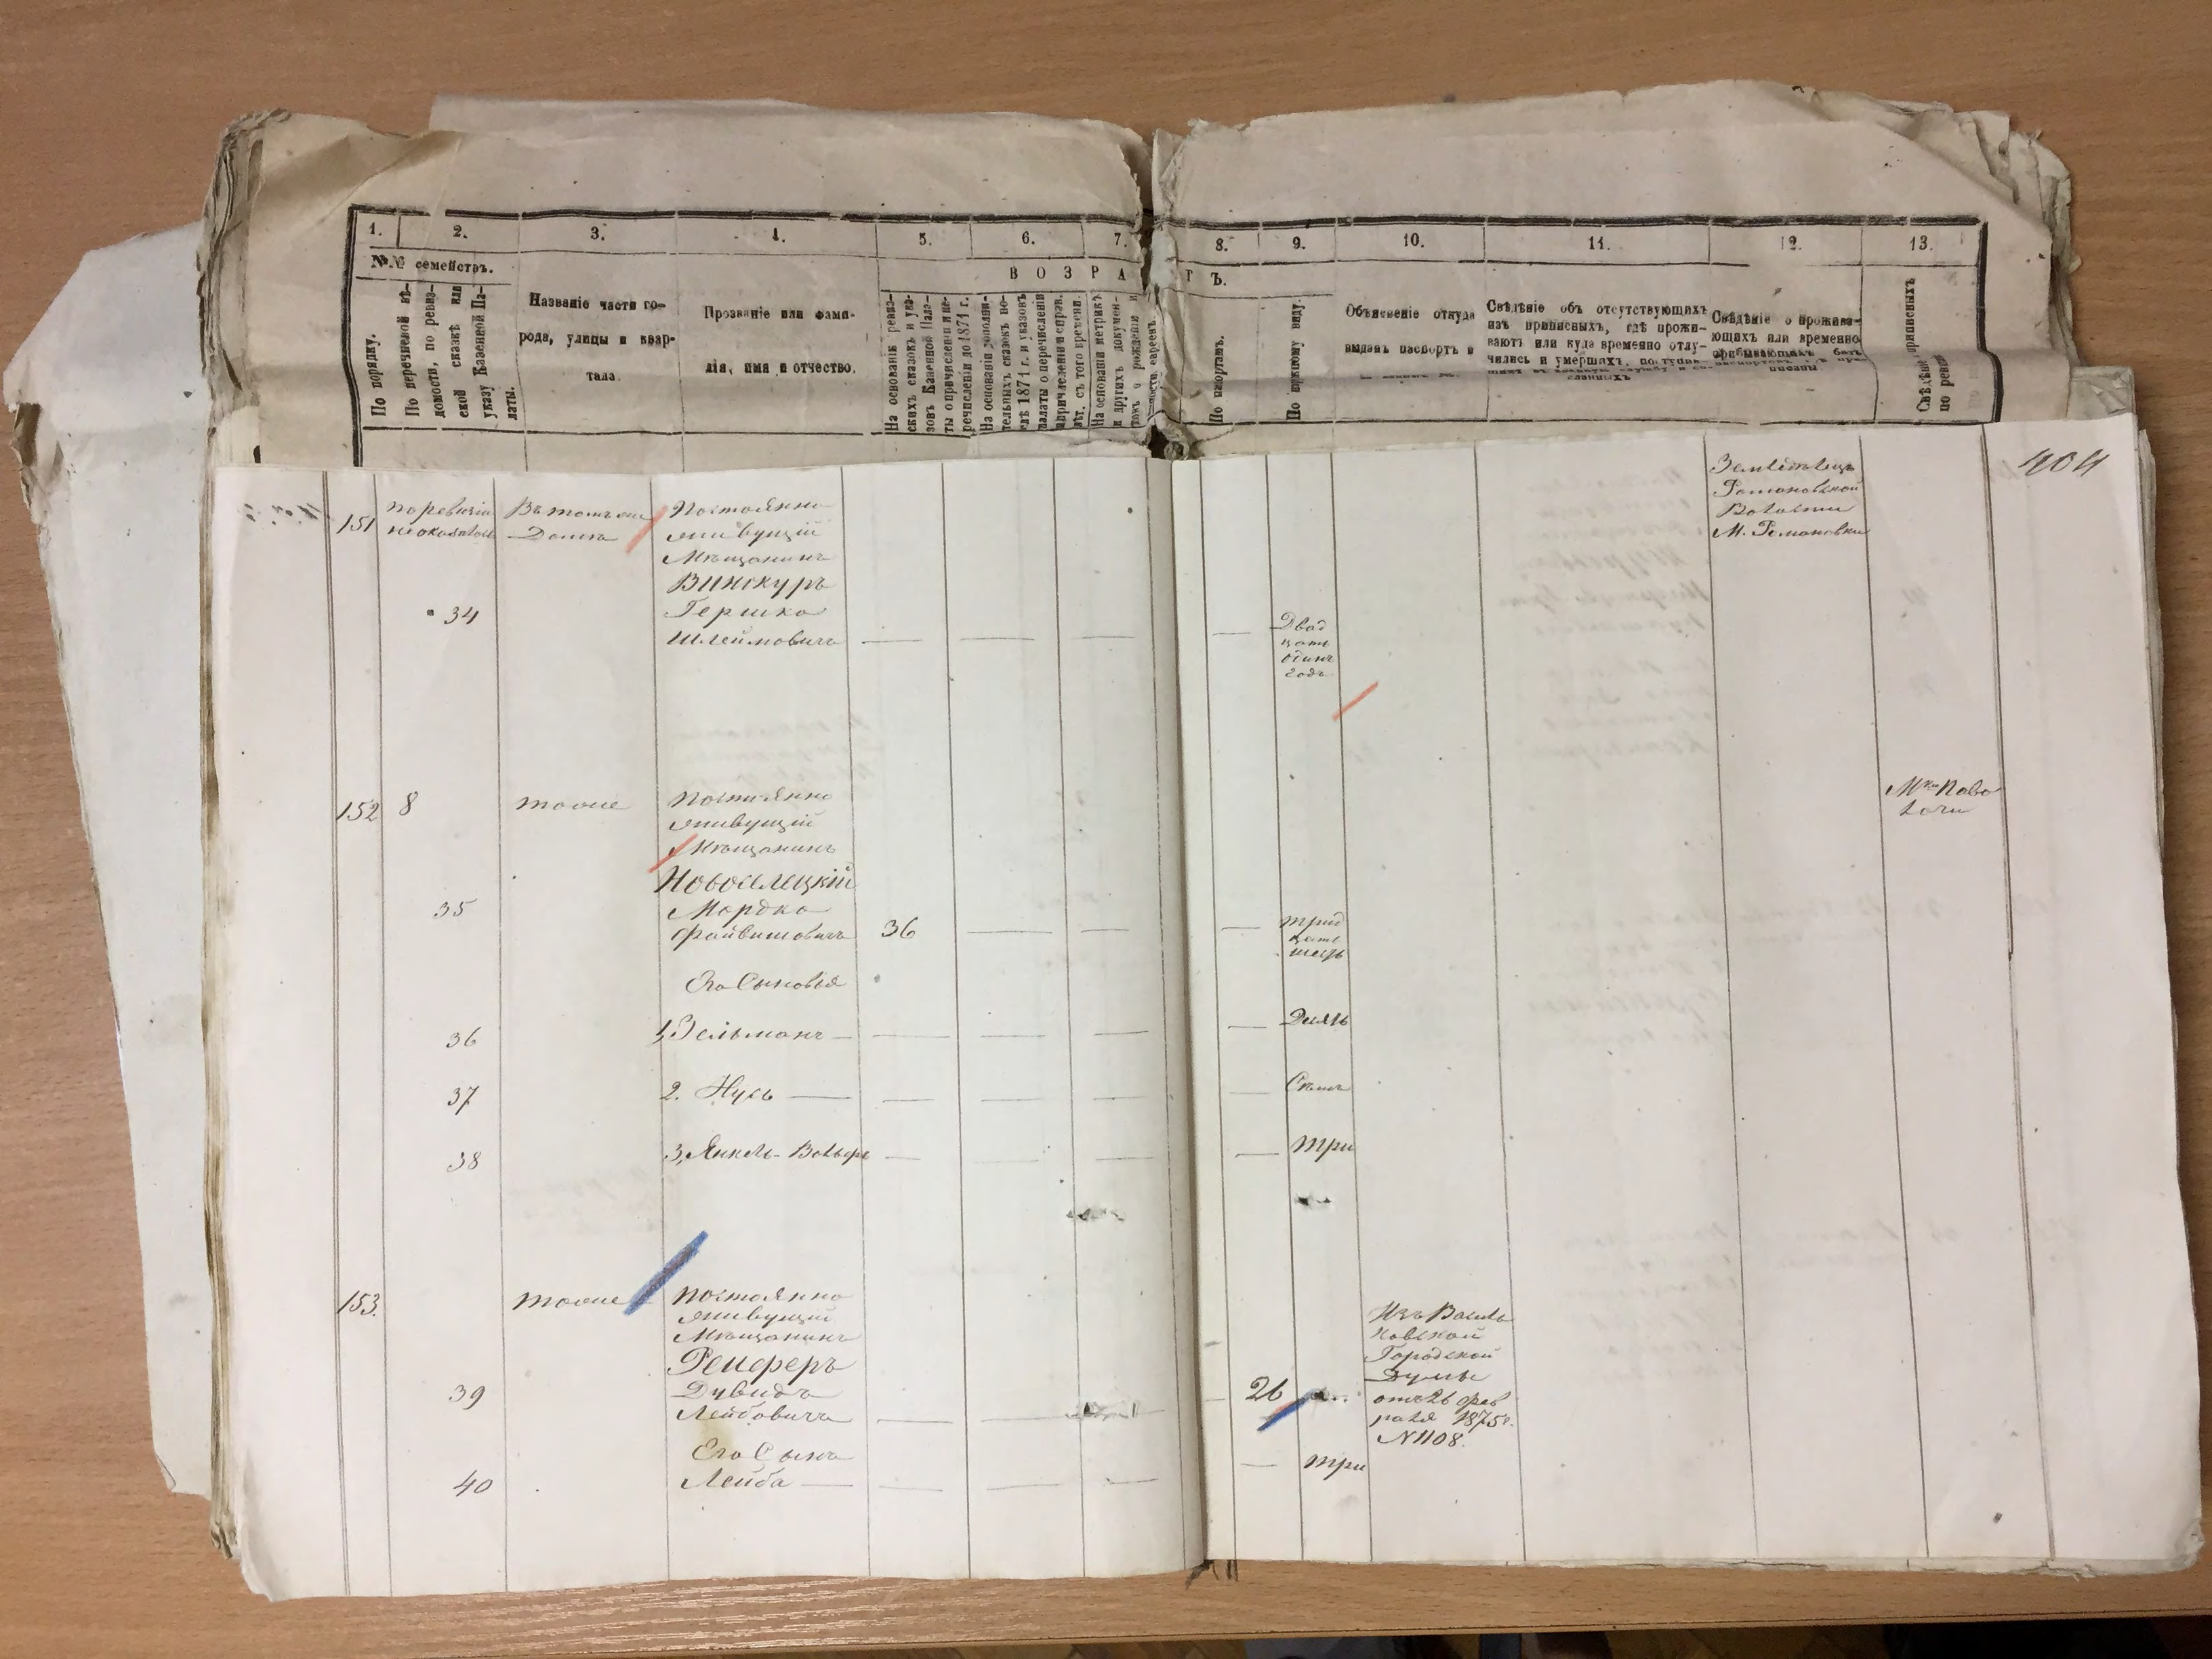 1.
2.
3.
4.
5.
6.
7.
8.
9.
10.
11.
12.
13.
№№ семействъ.
В О З Р А
Т Ъ.
По порядку.
По перечневой вѣ-
домости, по ревиз-
ской сказкѣ или
указу Казенной Па-
латы.
Названіе части го-
рода, улицы и квар-
тала.
Прозваніе или фами-
лія, имя и отчество.
На основаніи ревиз-
скихъ сказокъ и ука-
зовъ Казенной Пала-
ты о причисленіи и пе-
речисленіи до 1871 г.
На основаніи дополни-
тельныхъ сказокъ по-
слѣ 1871 г. и указовъ
палаты о перечисленіи
причисленіи и справ.
лѣт. съ того времени.
На основаніи метрикъ
и другихъ докумен-
товъ о рожденіи и
евреевъ.
По паспортамъ.
По виду.
Объясненіе откуда
выданъ паспортъ и
Свѣдѣніе объ отсутствующихъ
изъ приписныхъ, гдѣ прожи-
ваютъ или куда временно отлу-
чились и умершихъ, поступив-
Свѣдѣніе о прожива-
ющихъ или временно
пребывающихъ
приписныхъ
по реви
404
151
по ревизіи
не оказался
Въ томъ же
Домѣ
Постоянно
живущій
Мѣщанинъ
Винокуръ
34
Гершко
Шлеймовичъ
Двад
цать
одинъ
годъ
Земледѣлецъ
Романовской
Волости
М. Романовки
152
8
тоже
Постоянно
живущій
Мѣщанинъ
Новоселецкій
35
Мордко
Файвишовичъ
36
трид
цать
шесть
Мка Паво
лочи
Его Сыновья
36
1, Зельманъ
Десять
37
2. Нусь
Семь
38
3, Янкель-Вольфъ
три
153.
тоже
Постоянно
живущій
Мѣщанинъ
Ренферъ
39
Дувидъ
Лейбовичъ
26
Изъ Василь
ковской
Городской
Думы
отъ 26 фев
раля 1875г.
N1108.
Его Сынъ
40
Лейба
три